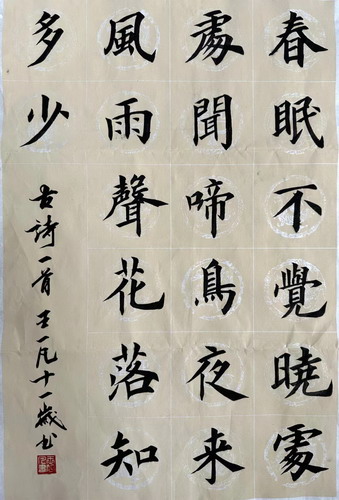 春眠不覺曉處
處聞啼鳥夜来
風雨聲花落知
多少
古詩一首王一凡十一歲書